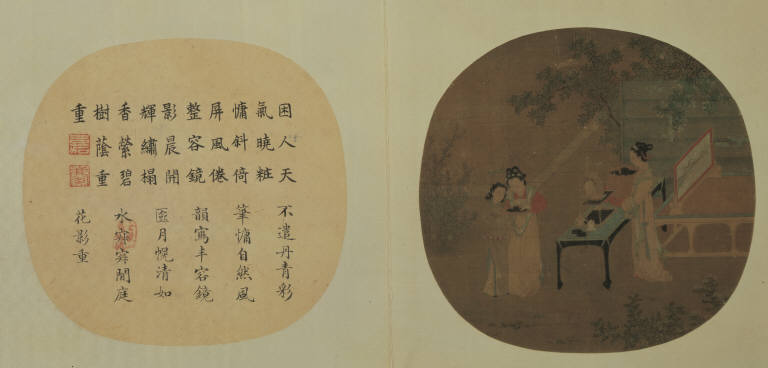 困人天
氣曉粧
慵斜倚
屏風倦
整容鏡
影晨開
輝繡榻
香縈碧
樹蔭重
重
不遣丹青彩
筆慵自然風
韻寫丰容鏡
匳月幌清如
水寂寂閒庭
花影重